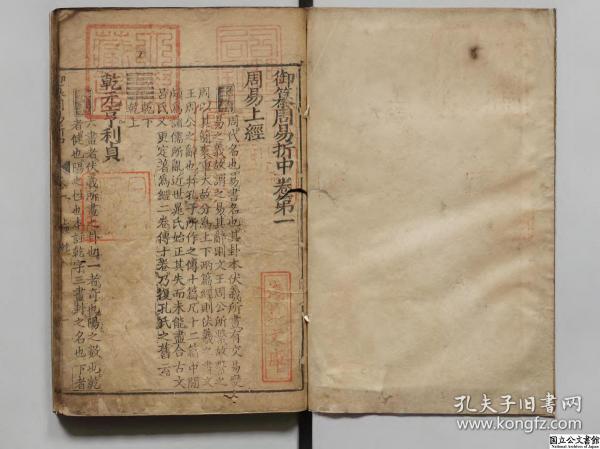 御纂周易折中卷第一
周易上經
本義周代名也易書名也其卦本伏羲所畫有交易變
易之義故謂之易其辭則文王周公所繫故繫之
周以其簡袠重大故分為上下兩篇經則伏羲之畫文
王周公之辭也并孔子所作之傳十篇凡十二篇中間
頗為諸儒所亂近世晁氏始正其失而未能盡合古文
呂氏又更定著為經二卷傳十卷乃復孔氏之舊云
乾下
乾上
乾元亨利貞
六畫者伏羲所畫之卦也一者奇也陽之數也乾
者健也陽之性也本註乾字三畫卦之名也下者
孔夫子旧书网
www.kongfz.com
国立公文書館
National Archives of Japan